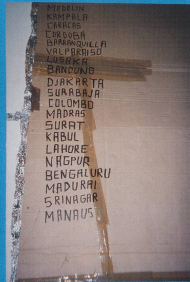 MEDELLIN
KAMPALA
CARACAS
CORDOBA
BARRANQUILLA
VALPARAISO
LUSAKA
BANDUNG
DJAKARTA
SURABAJA
COLOMBO
MADRAS
SURAT
KABUL
LAHORE
NAGPUR
BENGALURU
MADURAI
SRINAGAR
MANAUS